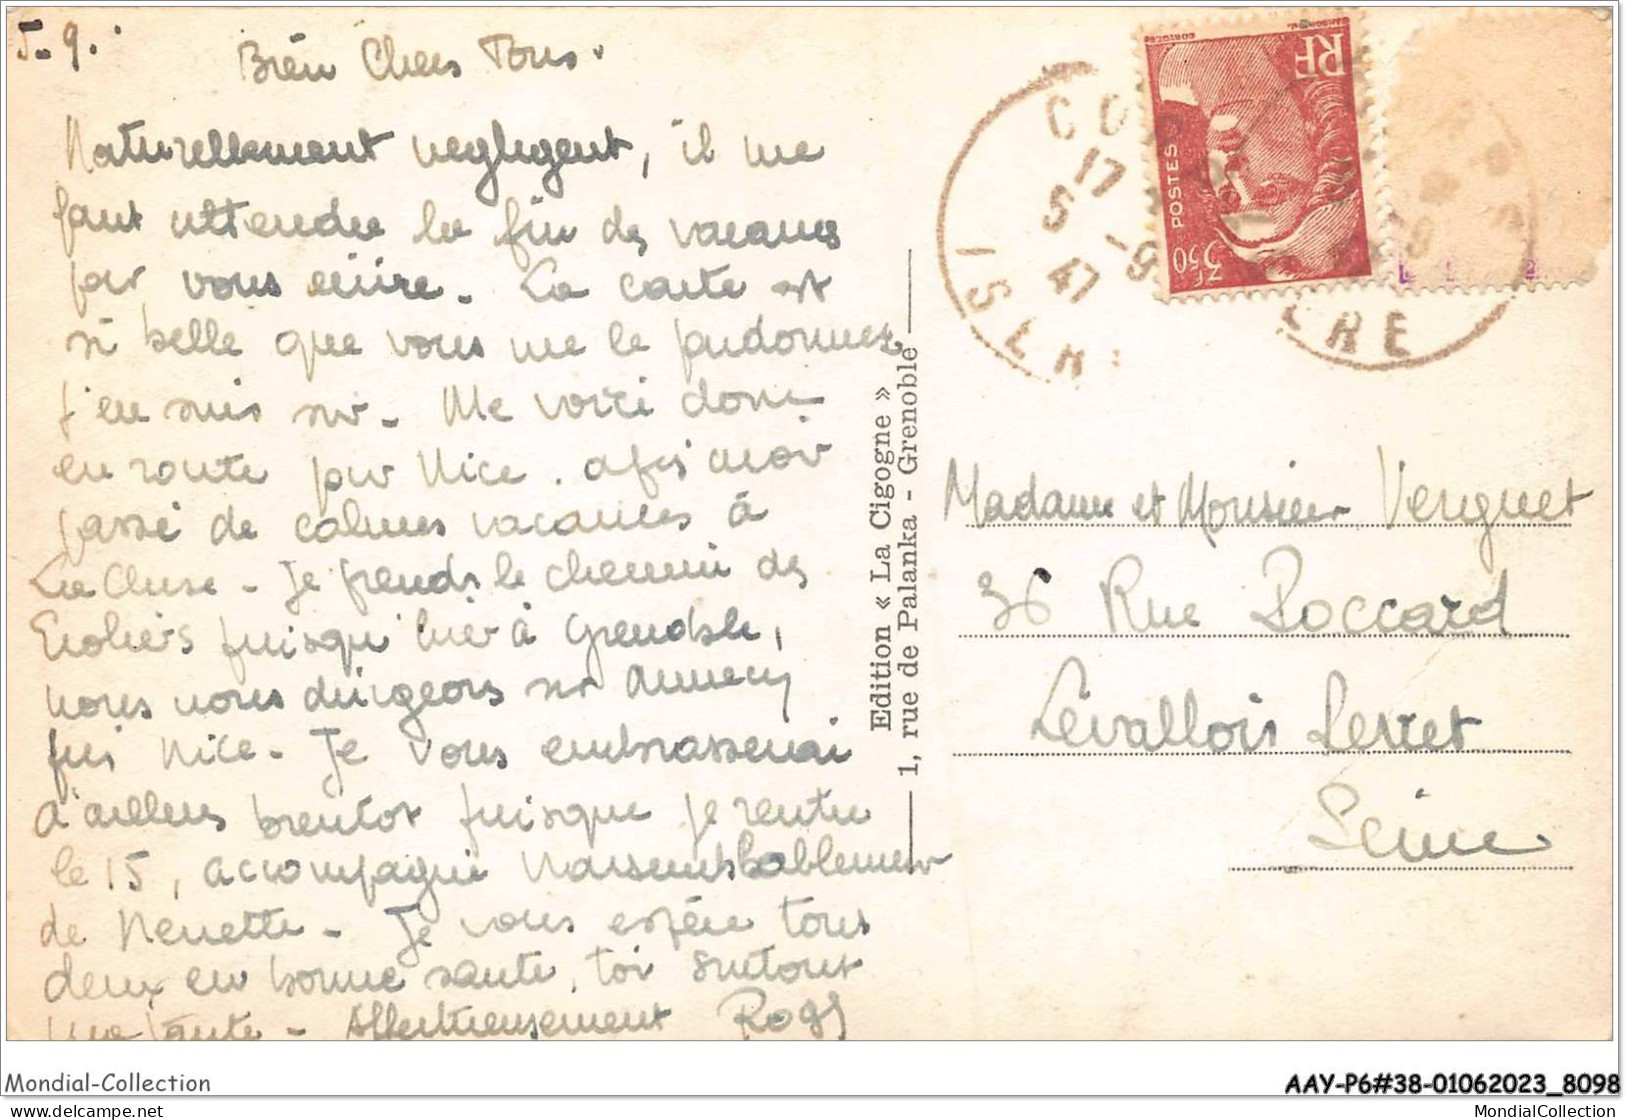 5-9.
Bien Chers Tous.
Naturellement negligent, il me
faut attendre la fin des vacances
pour vous écrire. La carte est
si belle que vous me le pardonnez
j'en suis sur. Me voici donc
en route pour Nice. après avoir
passé de calmes vacances à
La Cluse - Je prends le chemin des
Ecoliers puisqu'hier à Grenoble,
nous nous dirigeons sur Annecy
puis Nice - Je vous embrasserai
d'ailleurs bientot puisque je rentre
le 15, accompagné vraisemblablement
de Nenette - Je vous espère tous
deux en bonne santé, toi surtout
ma tante - Affectueusement Rogy
Edition « La Cigogne »
1, rue de Palanka - Grenoble
RF
POSTES
3F50
17
5 -9
47
ISERE
Madame et Monsieur Verguet
36 Rue Poccard
Levallois Perret
Seine
Mondial-Collection
AAY-P6#38-01062023_8098
www.delcampe.net
MondialCollection